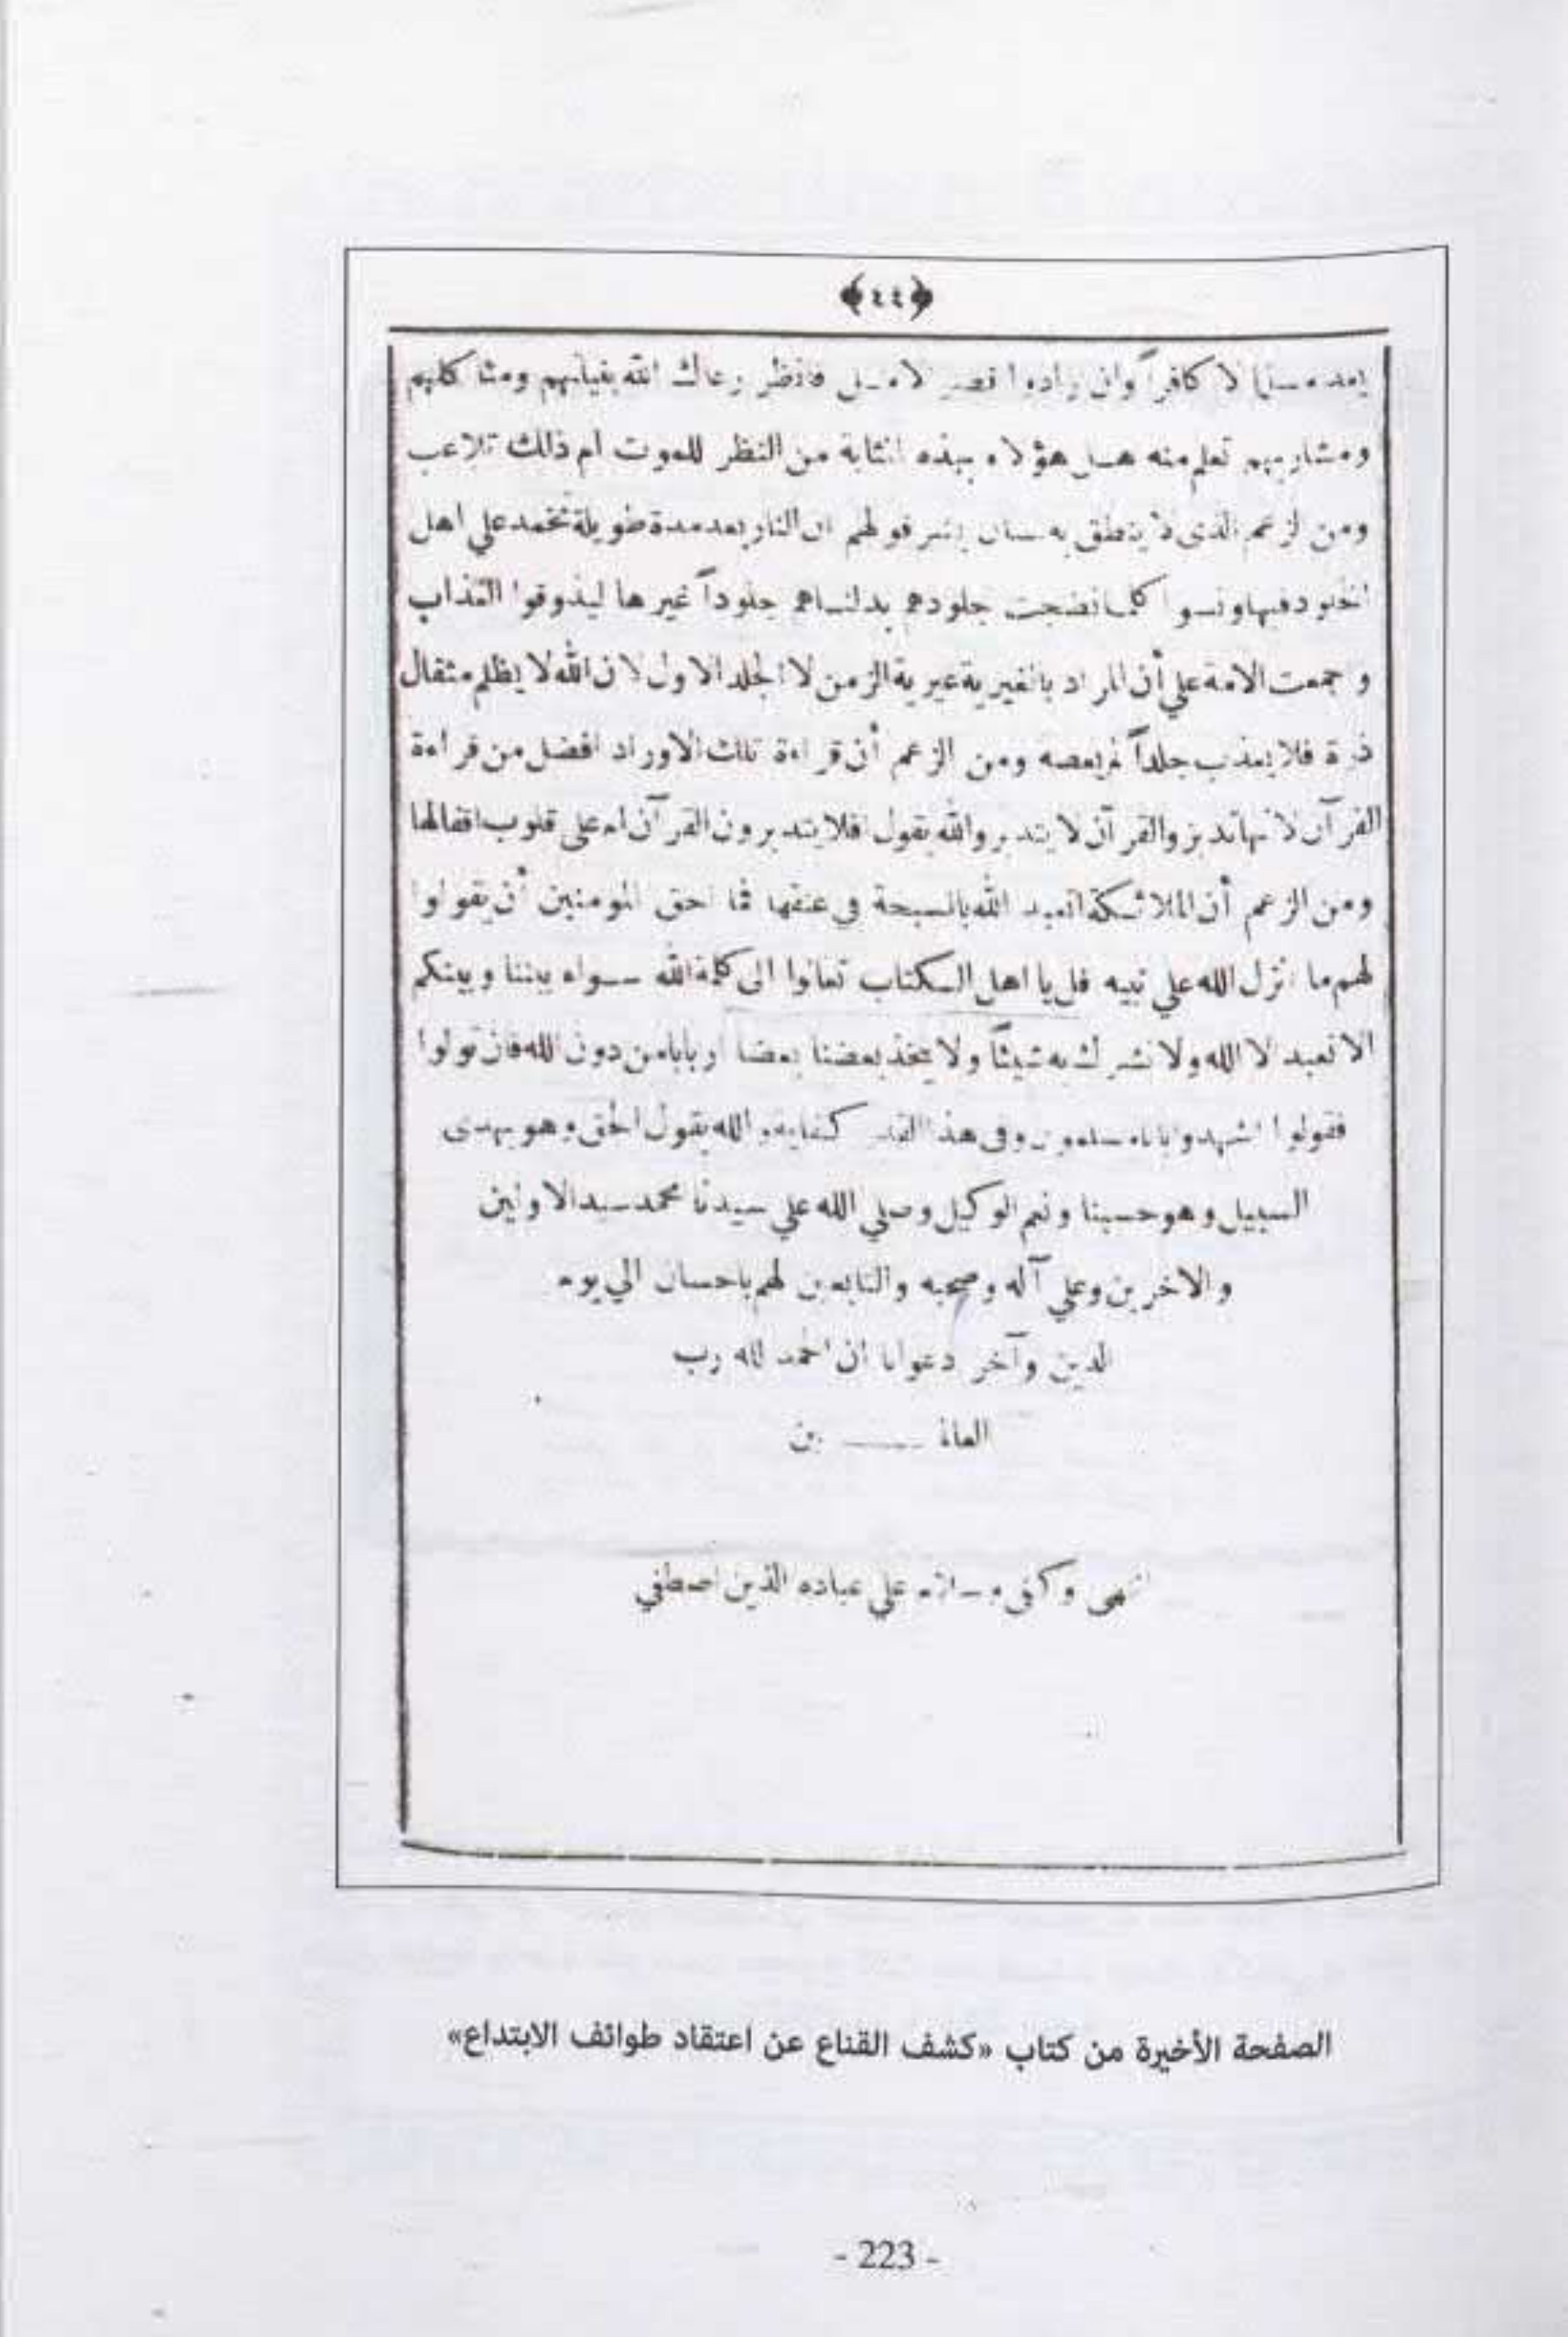 ﴿٤٤﴾
لا كافراً وان فانظر رعاك الله ومشاكلهم
ومشاربهم تعلم منه هل هؤلاء بهذه المثابة من النظر للموت ام ذلك تلاعب
ومن الزعم الذى لا ينطق به لسان بشر قولهم ان النار بعد مدة طويلة تخمد على اهل
الخلود فيها ونسوا كلما نضجت جلودهم بدلناهم جلوداً غيرها ليذوقوا العذاب
واجمعت الامة علي أن المراد بالغيرية غيرية الزمن لا الجلد الاول لان الله لا يظلم مثقال
ذرة فلا يعذب جلداً لم يعصه ومن الزعم أن قراءة تلك الاوراد افضل من قراءة
القرآن لانها تدبر والقرآن لا يتدبر والله يقول افلا يتدبرون القرآن ام على قلوب اقفالها
ومن الزعم أن الملائكة تعبد الله بالسبحة في عنقها فما احق المومنين أن يقولوا
لهم ما انزل الله علي نبيه قل يا اهل الكتاب تعالوا الى كلمة الله سواء بيننا وبينكم
الا نعبد الا الله ولا نشرك به شيئاً ولا يتخذ بعضنا بعضا اربابا من دون الله فان تولوا
فقولوا اشهدوا بانا مسلمون وفى هذا القدر كفاية والله يقول الحق وهو يهدى
السبيل وهو حسبنا ونعم الوكيل وصلي الله علي سيدنا محمد سيد الاولين
والاخرين وعلي آله وصحبه والتابعين لهم باحسان الي يوم
الدين وآخر دعوانا ان الحمد لله رب
العالمـــــين
انتهى وكفى وسلام علي عباده الذين اصطفي
الصفحة الأخيرة من كتاب «كشف القناع عن اعتقاد طوائف الابتداع»
- 223 -